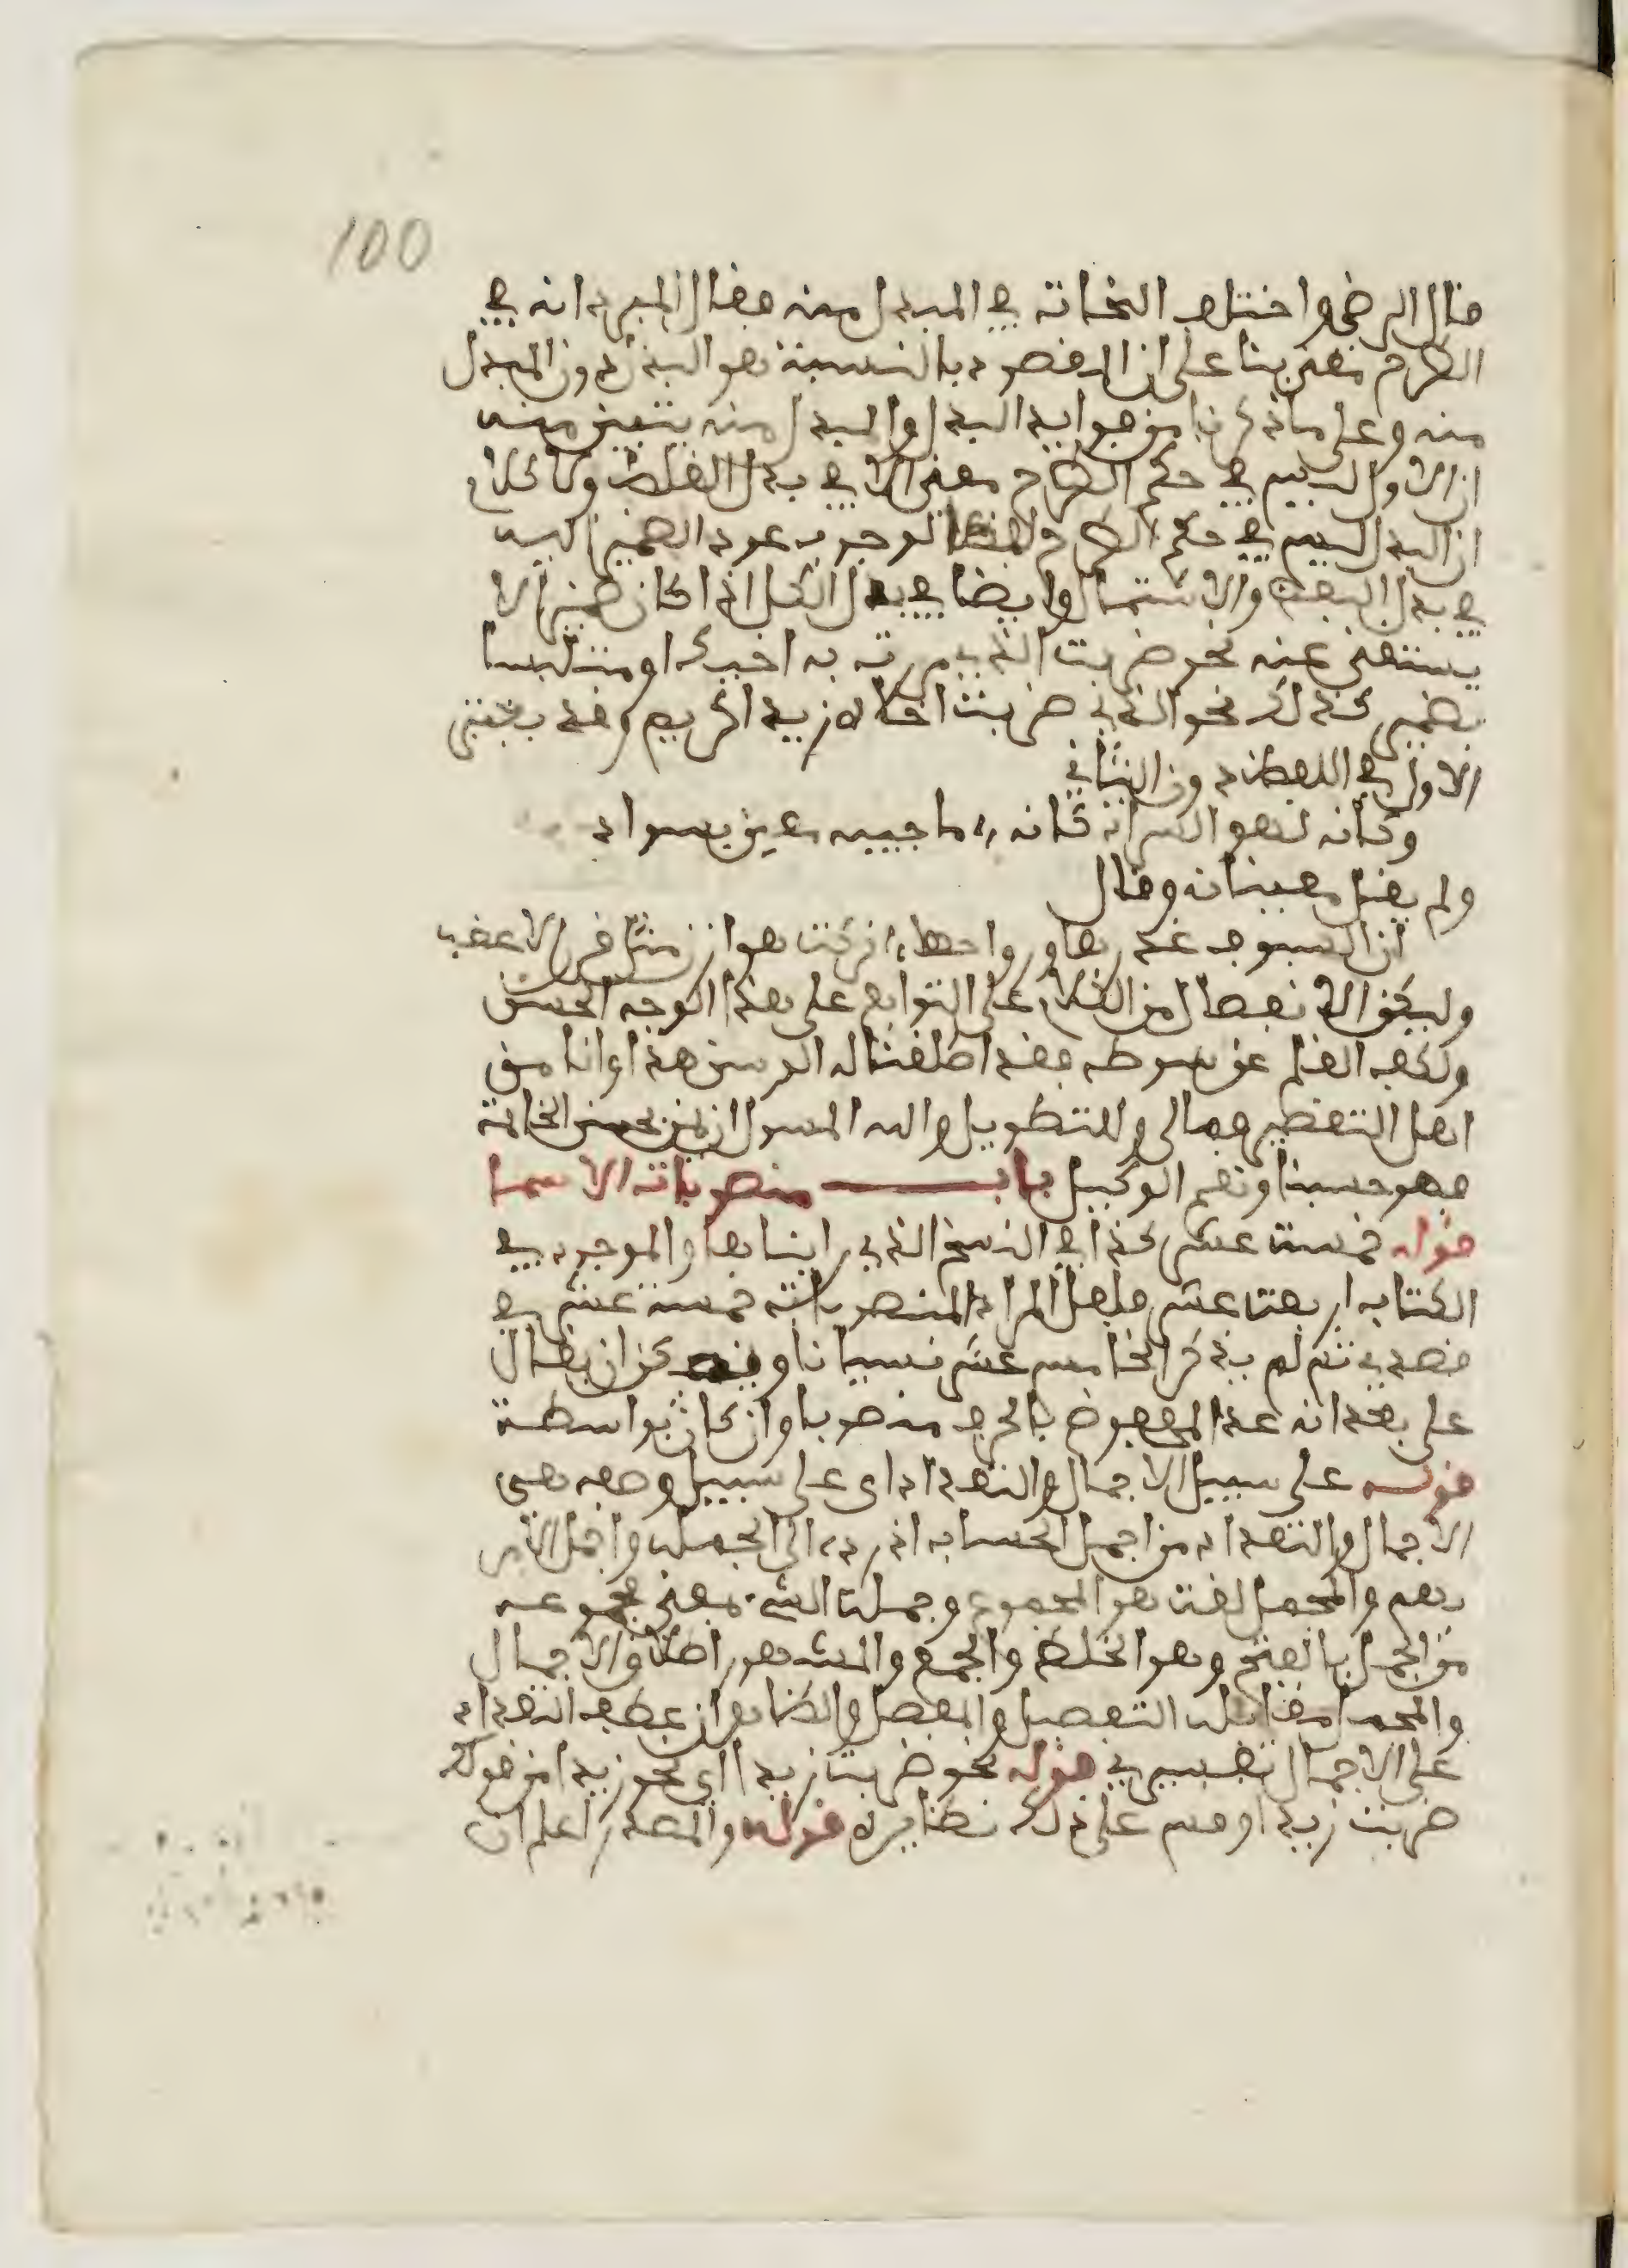 100
قال الرضي واختلف النحاة في المبدل منه فقال المبرد انه في
الطرح معنى بنا على ان المقصود بالنسبة هو البدل دون المبدل
منه وعلى ما ذكرنا من فوايد البدل والمبدل منه يتبين منه
ان الاول ليس في حكم الطرح معنى الا في بدل الغلط ولا كلام
ان المبدل ليس في حكم الطرح لفظا لوجوب عود الضمير اليه
في بدل البعض والاشتمال وايضا في بدل الكل اذا كان ضميرا لا
يستغنى عنه نحو ضربت الذي مررت به اخيك او متلبسا
بضمير كذلك نحو الذي ضربت اخاه زيد الكريم وقد يعتبر
الاول في اللفظ دون الثاني
وكانه لهق السراة كانه ، ما حجيبه معين بسواد
ولم يقل معينان وقال
ان السيوف غدوها ورواحها ، تركت هوازن مثل قرن الاعضب
وليكن الانفصال من الكلام على التوابع على هذا الوجه الحسن
ولكف القلم عن بسوطه فقد اطلقنا له الرسن هذا وانا من
اهل التقصير فمالي وللتطويل والله المسول ان يمن بحسن الخاتمة
فهو حسبنا ونعم الوكيل باب منصوبات الاسما
قوله خمسة عشر كذا في النسخ الذي رايناها والموجود في
الكتاب اربعة عشر فلعل المراد المنصوبات خمسة عشر في
قصدي ثم لم يذكر الخامس عشر نسيانا ويمكن ان يقال
على بعد انه عد المخفوض بالحرف منصوبا وان كان بواسطة
قوله على سبيل الاجمال والتعداد اي على سبيل وصف هي
الاجمال والتعداد من اجمل الحساب اذا رده الى الجملة واجمل الامر
بهم والمجمل لغة هو المجموع وجملة الشيء بمعنى مجموعه
من الجمل بالفتح وهو الخلط والجمع والمشهور اطلاق الاجمال
والمجمل مقابلة التفصيل والمفصل والظاهر ان عطف التعداد
على الاجمال تفسيري قوله نحو ضربت زيدا اي نحو زيدا من قولك
ضربت زيدا وقس على ذلك نظايره قوله والمصدر اعلم ان